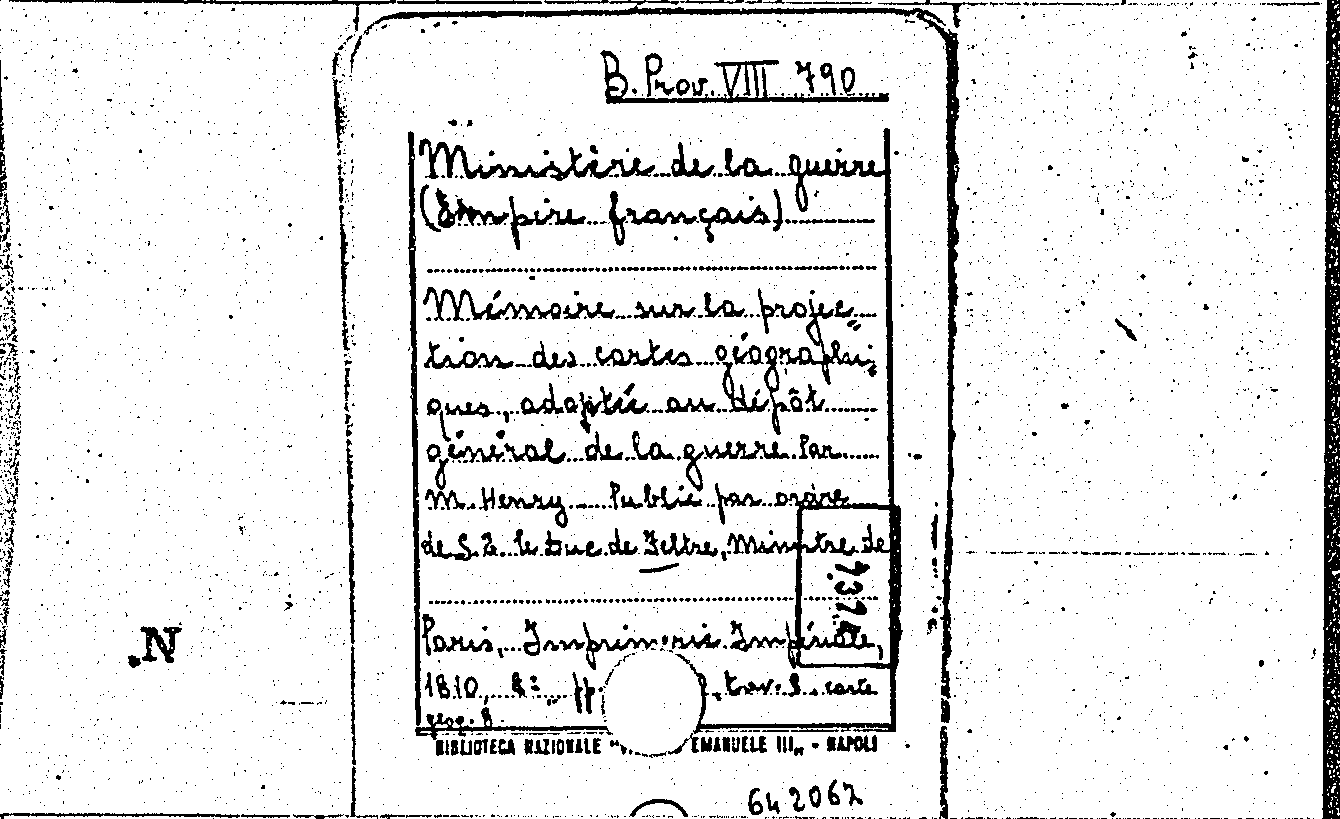 B. Prov. VIII 790
Ministère de la guerre
(Empire français)
Mémoire sur la projec=
tion des cartes géographi=
ques, adoptée au dépôt
général de la guerre Par
M. Henry Publié par ordre
de S. E. le Duc de Feltre, Ministre de
Paris, Imprimerie Impériale,
1810, 8° pp. , tav. 8. carte
geog. 8.
BIBLIOTECA NAZIONALE EMANUELE III„ - NAPOLI
642062
N.